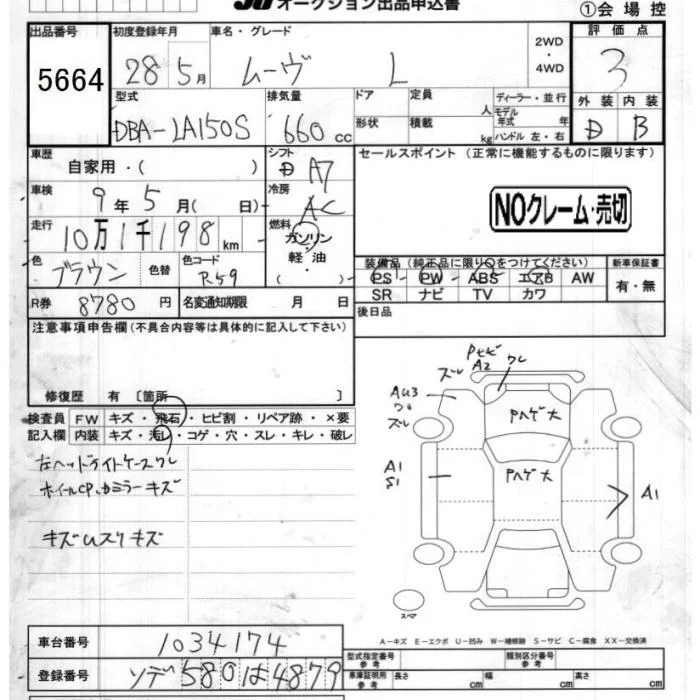 JU オークション出品申込書
①会場控
出品番号
5664
初度登録年月
28年5月
車名・グレード
ムーヴ L
2WD
・
4WD
評価点
3
外装 内装
D B
型式
DBA-LA150S
排気量
660 cc
ドア
形状
定員 人
積載 kg
ディーラー・並行
モデル年式 年
ハンドル 左・右
車歴
自家用・( )
シフト
D A7
車検
9年5月( 日)
冷房
AC
走行
10万1千198km
燃料
ガソリン
・
軽油
( )
色
ブラウン
色替
色コード
R59
R券 8780 円
名変通知期限 月 日
セールスポイント (正常に機能するものに限ります)
NOクレーム・売切
装備品(純正品に限り○をつけてください)
PS PW ABS エアB AW
SR ナビ TV カワ
新車保証書
有・無
後日品
注意事項申告欄(不具合内容等は具体的に記入して下さい)
修復歴 有 〔箇所 〕
検査員記入欄
FW キズ・飛石・ヒビ割・リペア跡・×要
内装 キズ・汚レ・コゲ・穴・スレ・キレ・破レ
左ヘッドライトケースワレ
ホイールCP、カミラーキズ
キズUスリキズ
Pセビ
A2
ワレ
ズレ
AU3
ワレ
ズレ
Pハゲ大
A1
S1
Pハゲ大
A1
スペア
A-キズ E-エクボ U-凹み W-補修跡 S-サビ C-腐食 XX-交換済
車台番号
1034174
登録番号
ソデ580は4879
型式指定番号
参考
類別区分番号
参考
車庫証明用
参考
長さ cm 幅 cm 高さ cm